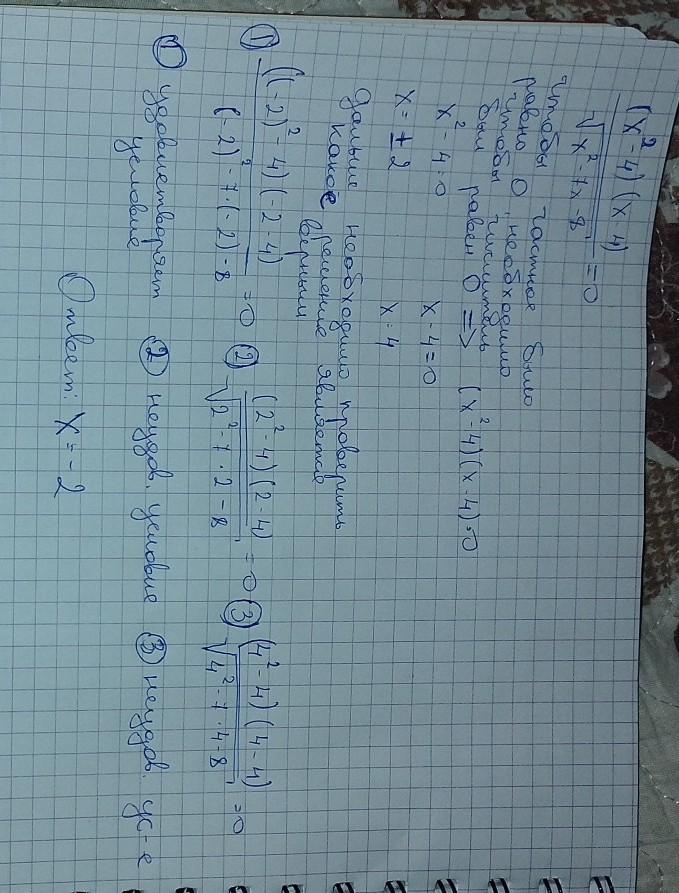 (x² - 4)(x - 4)
√(x² - 7x - 8) = 0
Чтобы частное было
равно 0, необходимо
чтобы числитель
был равен 0 => (x² - 4)(x - 4) = 0
x² - 4 = 0 x - 4 = 0
x = ± 2 x = 4
Дальше необходимо проверить
какое решение является
верным
① ((-2)² - 4)(-2 - 4) / (-2)² - 7 · (-2) - 8 = 0 ② (2² - 4)(2 - 4) / √(2² - 7 · 2 - 8) = 0 ③ (4² - 4)(4 - 4) / √(4² - 7 · 4 - 8) = 0
① удовлетворяет ② неудов. условие ③ неудов. ус-е
условие
Ответ: x = -2